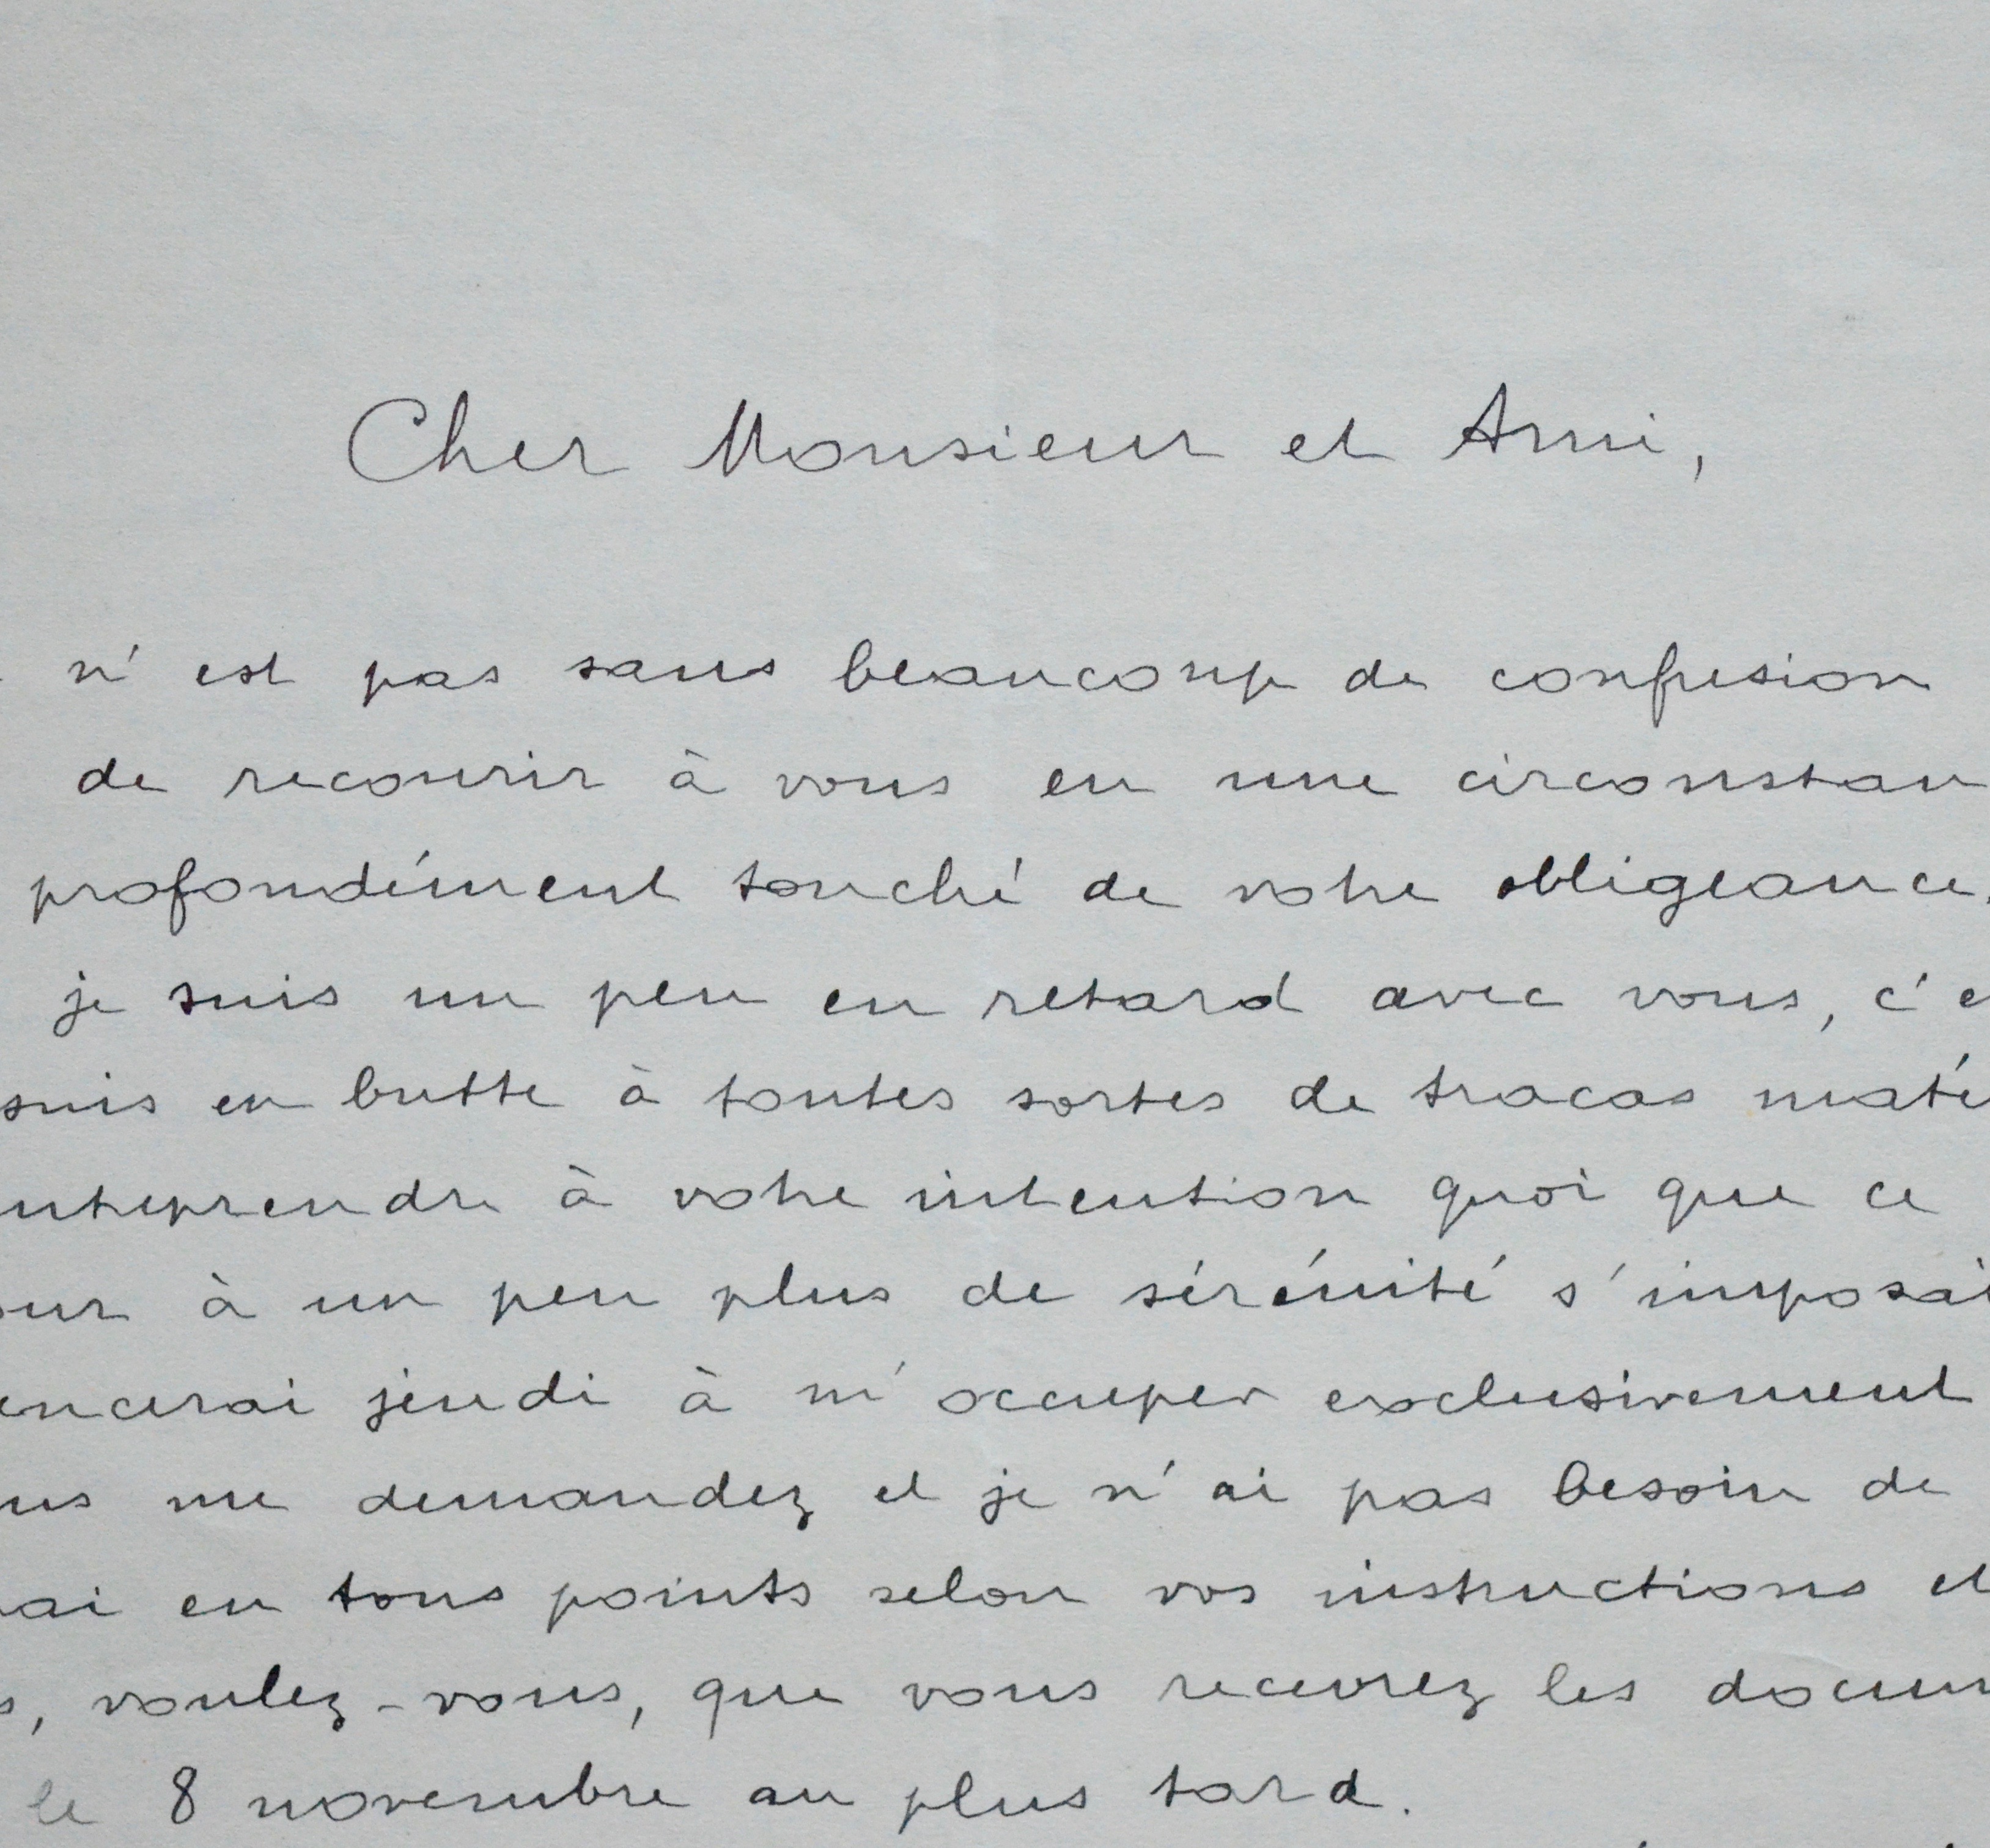 Cher Monsieur et Ami,
n'est pas sans beaucoup de confusion
de recourir à vous en une circonstan
profondément touché de votre obligeance.
je suis un peu en retard avec vous, c'e
suis en butte à toutes sortes de tracas maté
ntreprendre à votre intention quoi que ce
our à un peu plus de sérénité s'imposai
encerai jeudi à m'occuper exclusivement
us me demandez et je n'ai pas besoin de
rai en tous points selon vos instructions et
s, voulez-vous, que vous recevrez les docum
le 8 novembre au plus tard.